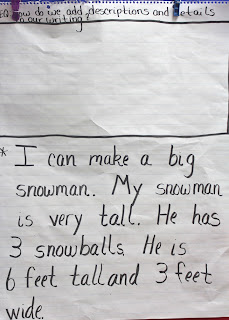 EQ How do we add descriptions and details
in our writing?
* I can make a big
snowman. My snowman
is very tall. He has
3 snowballs. He is
6 feet tall and 3 feet
wide.